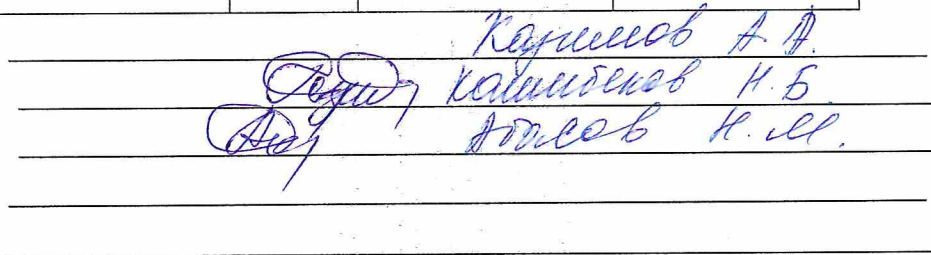 Казимов А.А.
Калимбеков Н.Б.
Абасов Н.М.